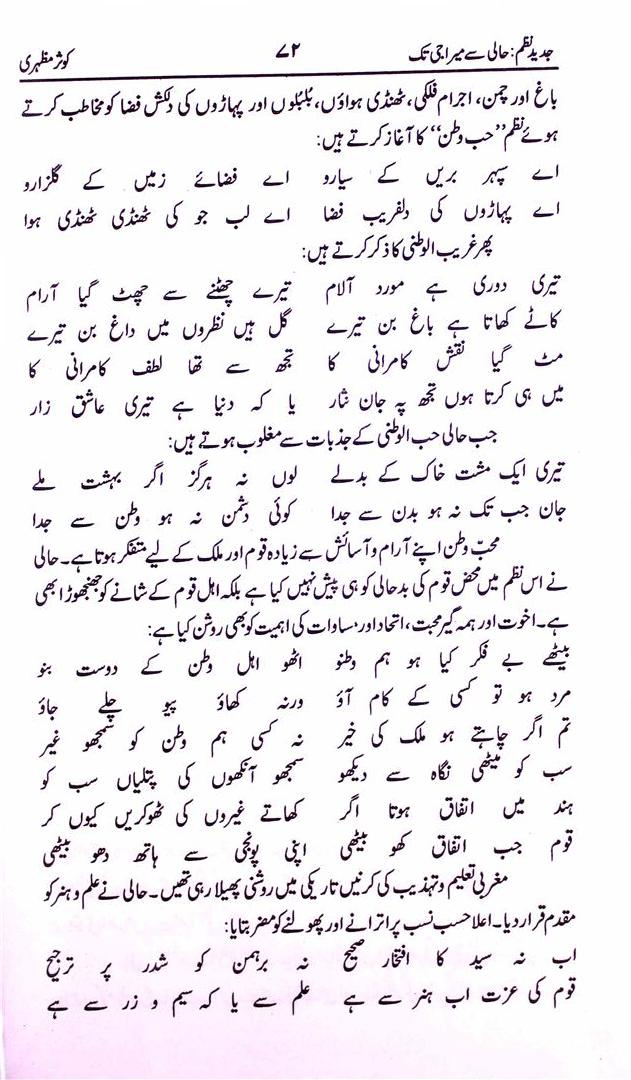 جدید نظم: حالی سے میراجی تک ۷۲ کوثر مظہری
باغ اور چمن، اجرام فلکی، ٹھنڈی ہواؤں، بلبلوں اور پہاڑوں کی دلکش فضا کو مخاطب کرتے
ہوئے نظم ”حب وطن“ کا آغاز کرتے ہیں:
اے سپہر بریں کے سیارو اے فضائے زمیں کے گلزارو
اے پہاڑوں کی دلفریب فضا اے لب جو کی ٹھنڈی ٹھنڈی ہوا
پھر غریب الوطنی کا ذکر کرتے ہیں:
تیری دوری ہے مورد آلام تیرے چھٹنے سے چھٹ گیا آرام
کاٹے کھاتا ہے باغ بن تیرے گل ہیں نظروں میں داغ بن تیرے
مٹ گیا نقش کامرانی کا تجھ سے تھا لطف کامرانی کا
میں ہی کرتا ہوں تجھ پہ جان نثار یا کہ دنیا ہے تیری عاشق زار
جب حالی حب الوطنی کے جذبات سے مغلوب ہوتے ہیں:
تیری ایک مشت خاک کے بدلے لوں نہ ہرگز اگر بہشت ملے
جان جب تک نہ ہو بدن سے جدا کوئی دشمن نہ ہو وطن سے جدا
محبّ وطن اپنے آرام و آسائش سے زیادہ قوم اور ملک کے لیے متفکر ہوتا ہے۔ حالی
نے اس نظم میں محض قوم کی بدحالی کو ہی پیش نہیں کیا ہے بلکہ اہل قوم کے شانے کو جھنجھوڑا بھی
ہے۔ اخوت اور ہمہ گیر محبت، اتحاد اور مساوات کی اہمیت کو بھی روشن کیا ہے:
بیٹھے بے فکر کیا ہو ہم وطنو اٹھو اہل وطن کے دوست بنو
مرد ہو تو کسی کے کام آؤ ورنہ کھاؤ پیو چلے جاؤ
تم اگر چاہتے ہو ملک کی خیر نہ کسی ہم وطن کو سمجھو غیر
سب کو میٹھی نگاہ سے دیکھو سمجھو آنکھوں کی پتلیاں سب کو
ہند میں اتفاق ہوتا اگر کھاتے غیروں کی ٹھوکریں کیوں کر
قوم جب اتفاق کھو بیٹھی اپنی پونجی سے ہاتھ دھو بیٹھی
مغربی تعلیم و تہذیب کی کرنیں تاریکی میں روشنی پھیلا رہی تھیں۔ حالی نے علم و ہنر کو
مقدم قرار دیا۔ اعلا حسب نسب پر اترانے اور پھولنے کو مضر بتایا:
اب نہ سید کا افتخار صحیح نہ برہمن کو شدر پر ترجیح
قوم کی عزت اب ہنر سے ہے علم سے یا کہ سیم و زر سے ہے